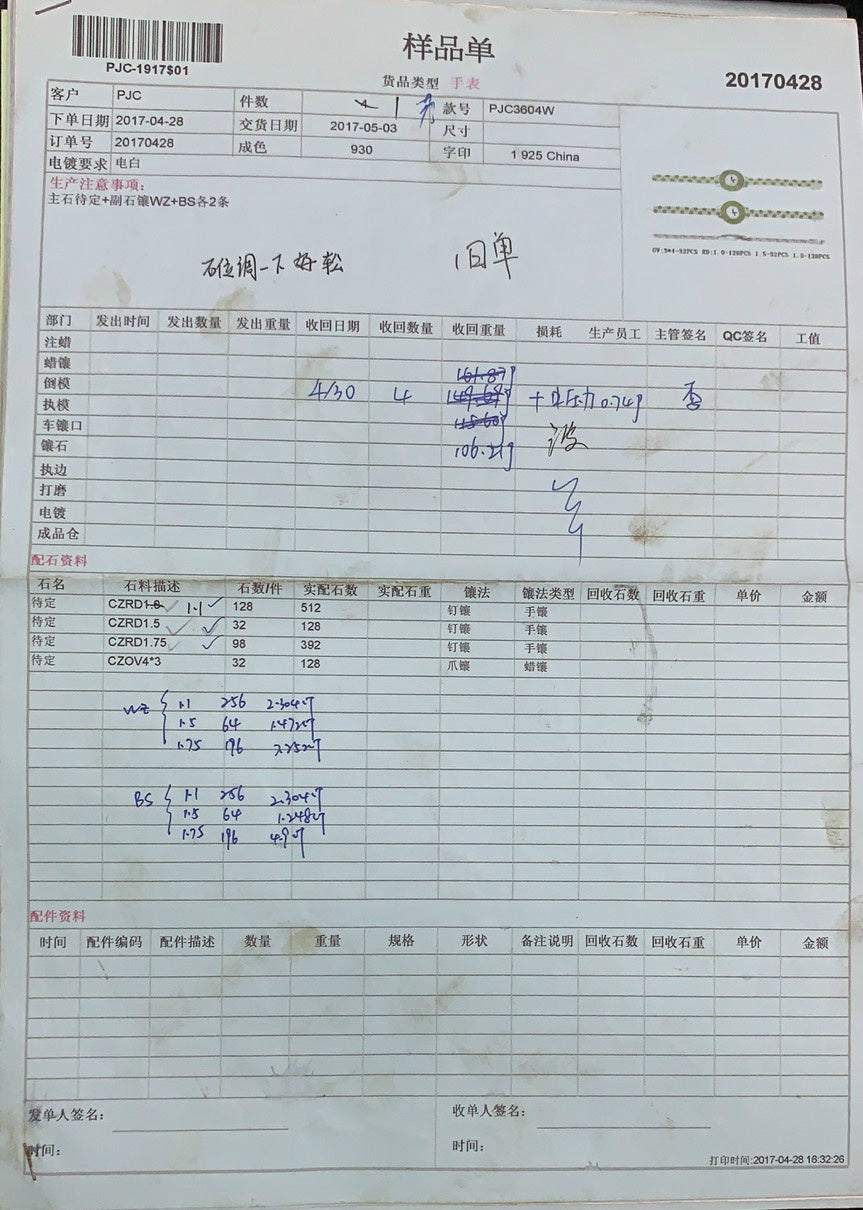 样品单
PJC-1917$01
货品类型 手表
20170428
客户 PJC 件数 1 款号 PJC3604W
下单日期 2017-04-28 交货日期 2017-05-03 尺寸
订单号 20170428 成色 930 字印 1 925 China
电镀要求 电白
生产注意事项:
主石待定+副石镶WZ+BS各2条
石位调一下 好松 旧单
OV:3*4-32PCS RD:1.0-128PCS 1.5-32PCS 1.0-128PCS
部门 发出时间 发出数量 发出重量 收回日期 收回数量 收回重量 损耗 生产员工 主管签名 QC签名 工值
注蜡
蜡镶
倒模 4/30 4
执模
车镶口
镶石 106.21g
执边
打磨
电镀
成品仓
配石资料
石名 石料描述 石数/件 实配石数 实配石重 镶法 镶法类型 回收石数 回收石重 单价 金额
待定 CZRD1.0 1.1 128 512 钉镶 手镶
待定 CZRD1.5 32 128 钉镶 手镶
待定 CZRD1.75 98 392 钉镶 手镶
待定 CZOV4*3 32 128 爪镶 蜡镶
WZ 1.1 256 2.304
1.5 64 1.472
1.75 196
BS 1.1 256 2.304
1.5 64 1.248
1.75 196 4.9
配件资料
时间 配件编码 配件描述 数量 重量 规格 形状 备注说明 回收石数 回收石重 单价 金额
发单人签名: 收单人签名:
时间: 时间:
打印时间:2017-04-28 16:32:26